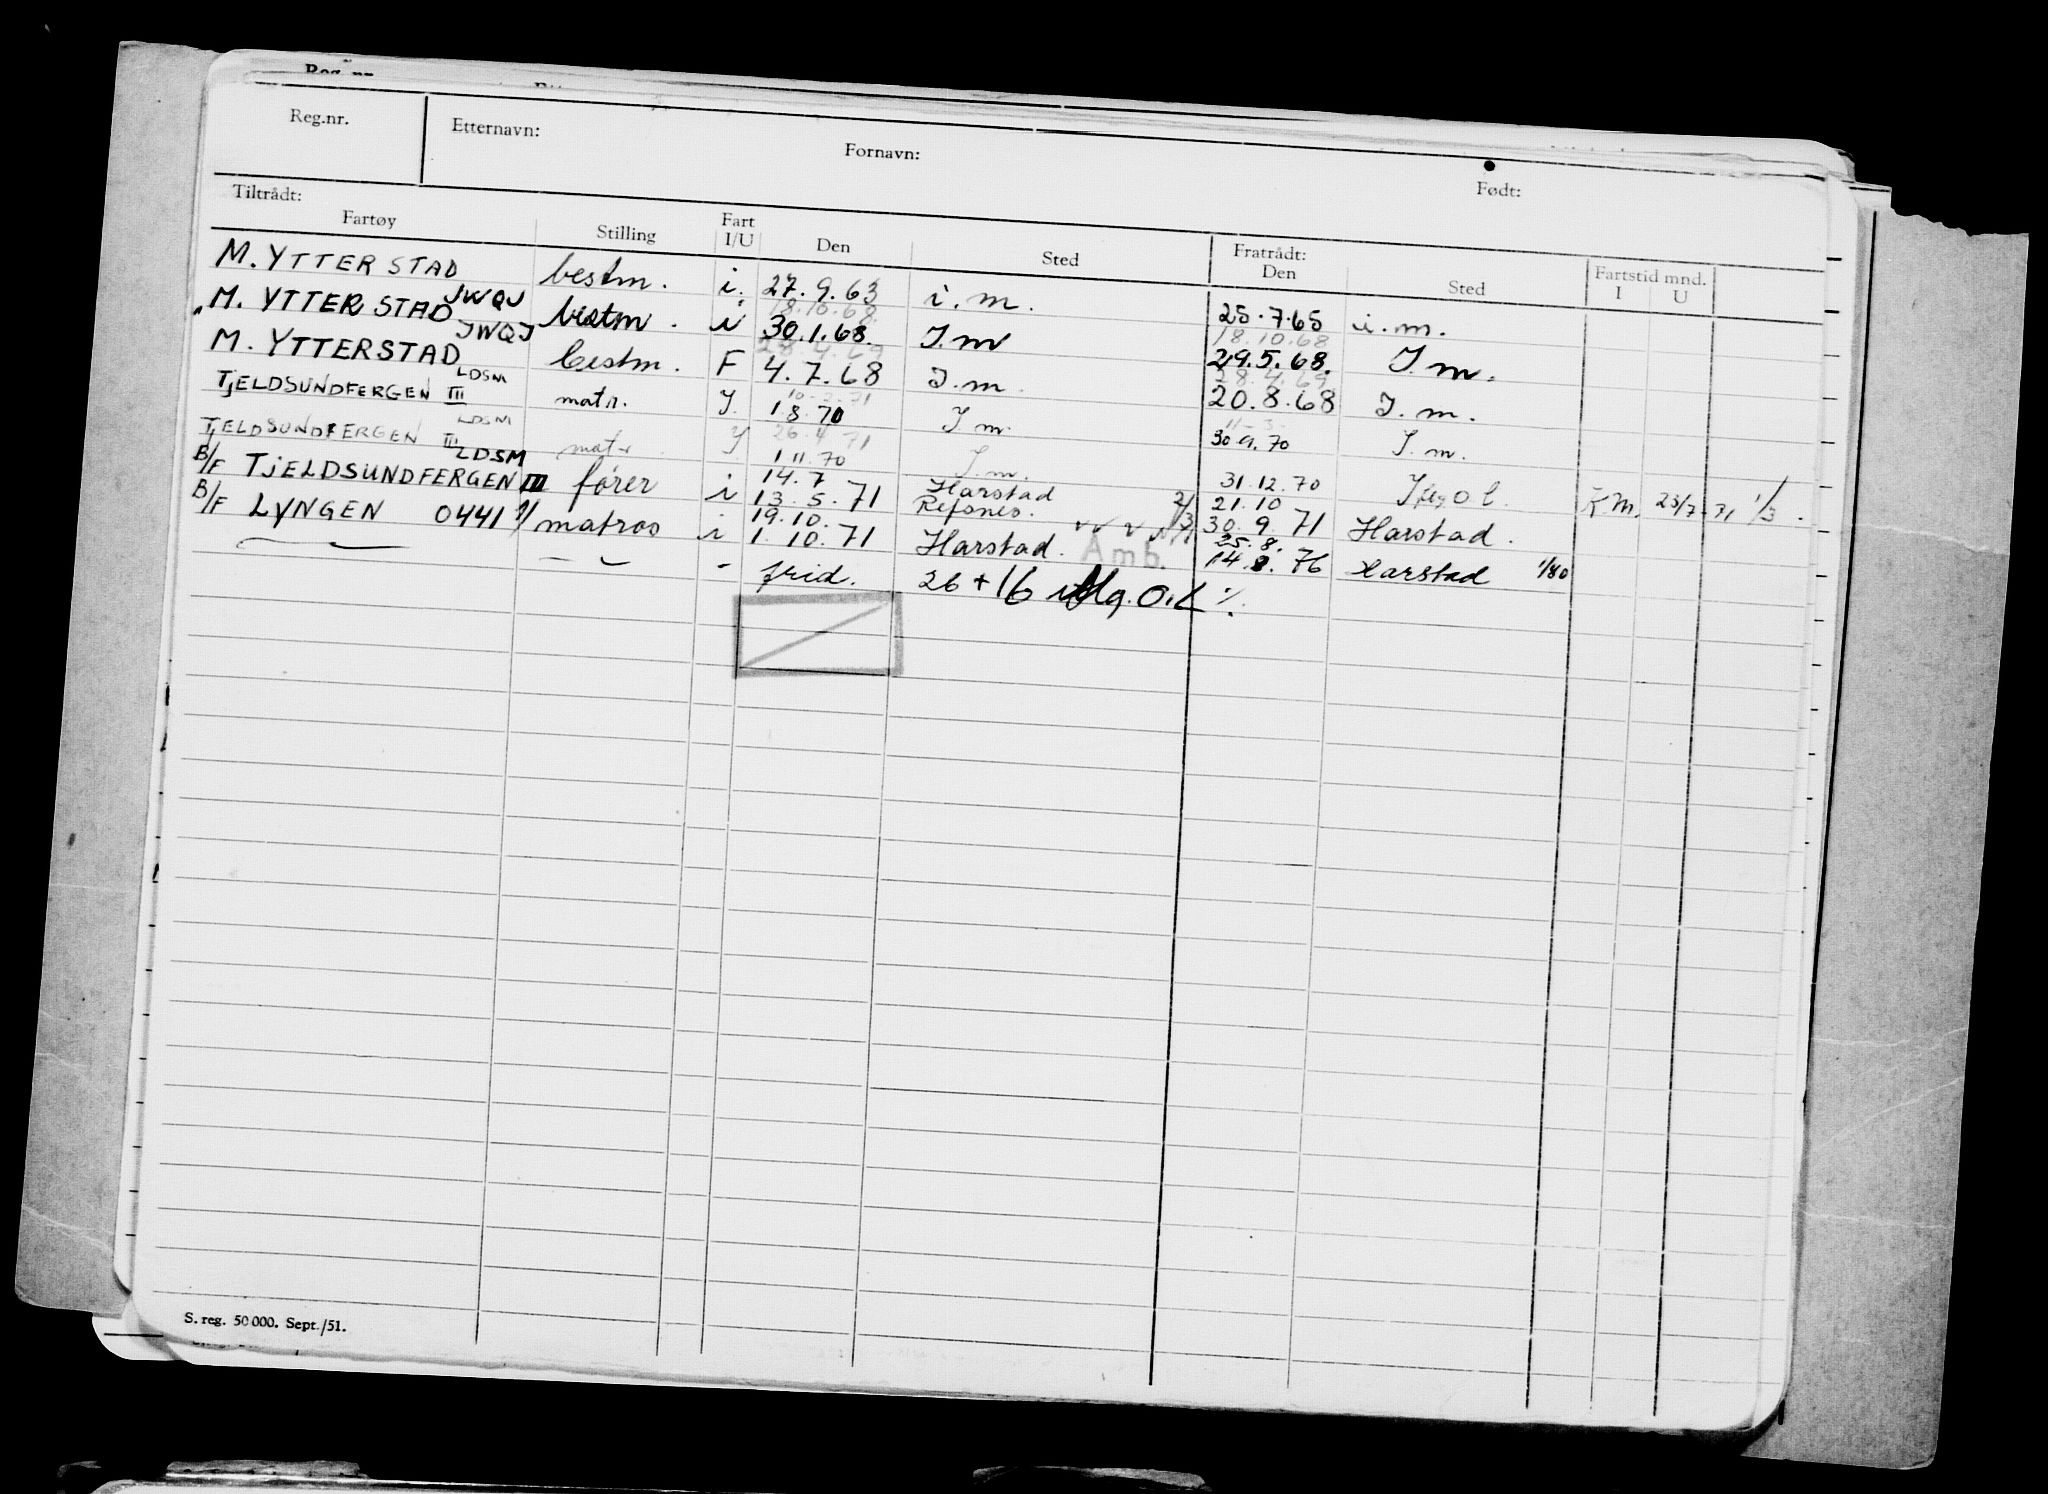 Reg.nr.
Reg.nr. Etternavn: Fornavn: Født:
Tiltrådt: Fratrådt:
Fartøy Stilling Fart I/U Den Sted Den Sted Fartstid mnd. I U
M. YTTERSTAD bestm. i. 27.9.63 i.m. 25.7.65 i.m.
JWQJ 18.10.68 18.10.68
M. YTTERSTAD bestm. i 30.1.68. I.m 29.5.68. I.m.
JWQJ 28.4.69 28.4.69
M. YTTERSTAD bestm. F 4.7.68 I.m. 20.8.68 I.m.
LDSM
TJELDSUNDFERGEN III matr. I. 1 8 70 I m. 30 9. 70 I.m.
LDSM 26.4 71
TJELDSUNDFERGEN III matr I 1 11 70 I.m. 31.12.70
LDSM 14.7 Harstad 21.10
B/F TJELDSUNDFERGEN III fører i 13.5.71 Refsnes. 30.9.71 Harstad.
19.10. 25.8.
B/F LYNGEN 0441 matros i 1.10.71 Harstad. Amb. 14.8.76 Harstad 1/80
frid. 26 + 16
S. reg. 50 000. Sept./51.